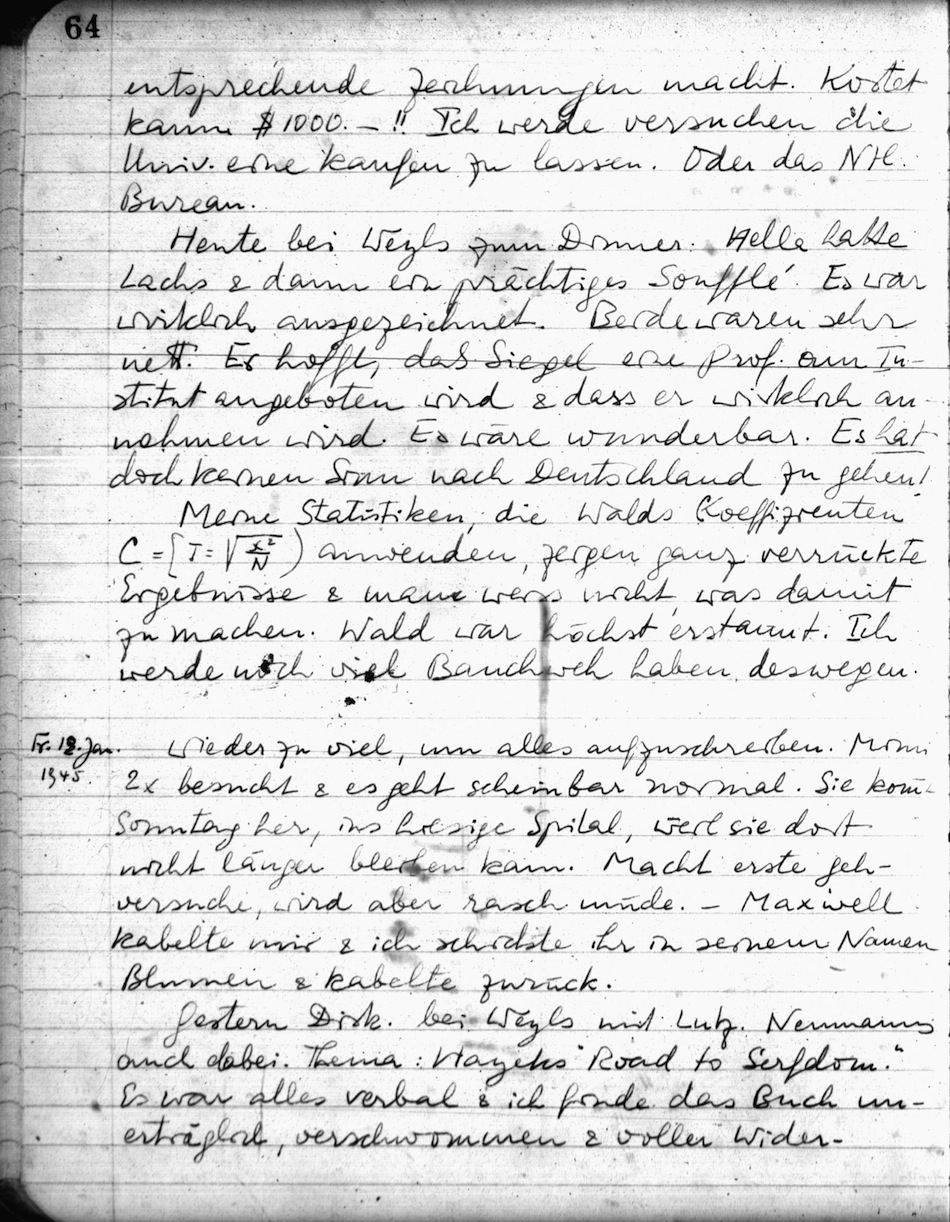 64
entsprechende Zeichnungen macht. Kostet
kaum $1000.— !! Ich werde versuchen die
Univ. eine kaufen zu lassen. Oder das Ntl.
Bureau.
Heute bei Weyls zum Dinner. Hella hatte
Lachs & dann ein prächtiges Soufflé. Es war
wirklich ausgezeichnet. Beide waren sehr
nett. Er hofft, das Siegel eine Prof. am In-
stitut angeboten wird & dass er wirklich an-
nehmen wird. Es wäre wunderbar. Es hat
doch keinen Sinn nach Deutschland zu gehen!
Meine Statistiken, die Walds Koeffizienten
C = [T = √x²/N) anwenden, zeigen ganz verrückte
Ergebnisse & man weiss nicht was damit
zu machen. Wald war höchst erstaunt. Ich
werde noch viel Bauchweh haben deswegen.
Fr. 12. Jan. Wieder zu viel, um alles aufzuschreiben. Mimi
1945. 2x besucht & es geht scheinbar normal. Sie kom
Sonntag her, ins hiesige Spital, weil sie dort
nicht länger bleiben kann. Macht erste geh-
versuche, wird aber rasch müde. – Maxwell
kabelte mir & ich schickte ihr in seinem Namen
Blumen & kabelte zurück.
Gestern Disk. bei Weyls mit Lutz. Neumanns
auch dabei. Thema: Hayeks "Road to Serfdom."
Es war alles verbal & ich finde das Buch un-
erträglich, verschwommen & voller Wider-